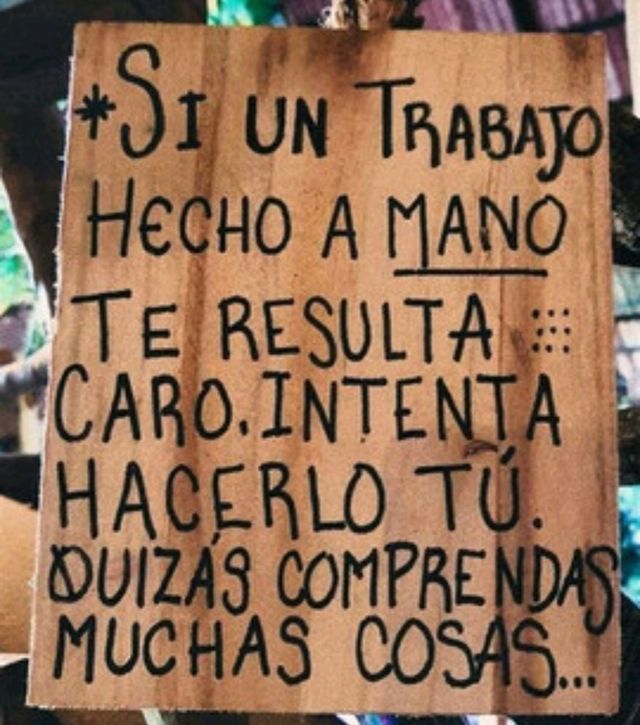 *SI UN TRABAJO
HECHO A MANO
TE RESULTA
CARO. INTENTA
HACERLO TÚ.
QUIZÁS COMPRENDAS
MUCHAS COSAS...